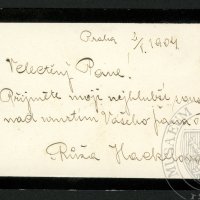 Praha 2/I. 1904
Velectěný Pane!
Přijměte moji nejhlubší sou
nad úmrtím Vašeho pana o
Růža Hackelová